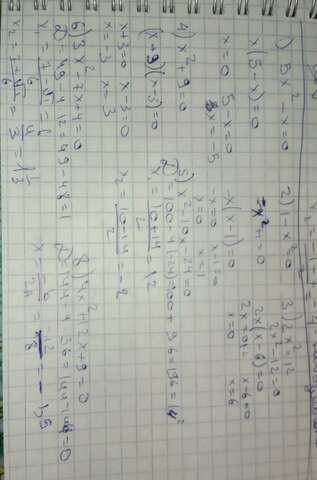 1) 5x² - x = 0
x(5 - x) = 0
x = 0 5 - x = 0
x = -5
2) 1 - x² = 0
-x² + 1 = 0
-x(x - 1) = 0
-x = 0 x - 1 = 0
x = 0 x = 1
3) 2x² = 12
2x² - 12 = 0
2x(x - 6) = 0
2x = 0 x - 6 = 0
x = 0 x = 6
4) x² + 9 = 0
(x + 3)(x - 3) = 0
x + 3 = 0 x - 3 = 0
x = -3 x = 3
5) x² - 10x - 24 = 0
= 100 - 4(-24) = 100 + 96 = 196 = 14²
x₁ = 10 + 14 / 2 = 12
x₂ = 10 - 14 / 2 = -2
6) 3x² - 7x + 4 = 0
D = 49 - 4 · 12 = 49 - 48 = 1
x₁ = 7 - 1 / 6 = 1
= 1 1/3
8) 4x² + 12x + 9 = 0
D = 144 - 4 · 36 = 144 - 144 = 0
= -1,5